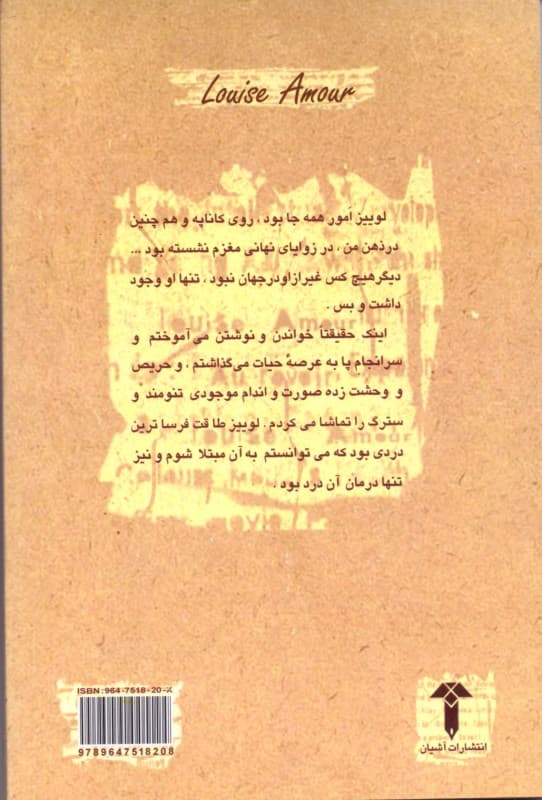 Louise Amour
لوییز آمور همه جا بود ، روی کاناپه و هم چنین
درذهن من ، در زوایای نهانی مغزم نشسته بود ...
دیگرهیچ کس غیرازاودرجهان نبود ، تنها او وجود
داشت و بس .
اینک حقیقتاً خواندن و نوشتن می آموختم و
سرانجام پا به عرصهٔ حیات می‌گذاشتم ، و حریص
و وحشت زده صورت و اندام موجودی تنومند و
سترگ را تماشا می کردم . لوییز طاقت فرسا ترین
دردی بود که می توانستم به آن مبتلا شوم و نیز
تنها درمان آن درد بود .
ISBN:964-7518-20-X
9789647518208
انتشارات آشیان